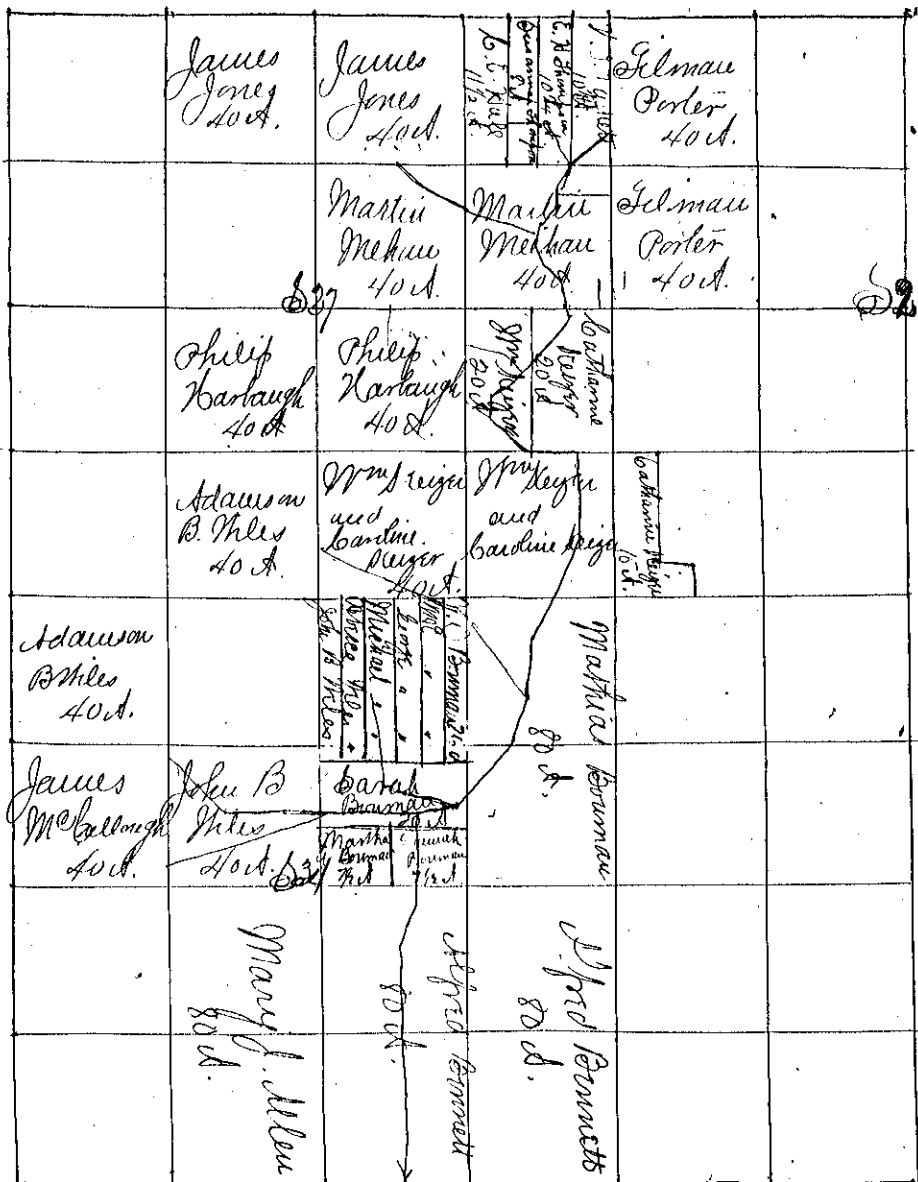 James
Jones
40 A.
James
Jones
40 A.
C. E.
11 1/2 A.
Susannah Thompson
8 A
E. H. Thompson
10 A
Gilman
Porter
40 A.
Martin
Mehau
40 A.
Martin
Mehau
40 A.
Gilman
Porter
40 A.
S 27
Philip
Harbaugh
40 A.
Philip
Harbaugh
40 A.
Wm Keizer
20 A
Catharine
Keizer
20 A
Adamson
B. Hiles
40 A.
Wm Keizer
and
Caroline
Keizer
40 A.
Wm Keizer
and
Caroline Keizer
Catharine Keizer
10 A.
Adamson
B Hiles
40 A.
John B Hiles
Hiles "
Michael "
George "
"
Bowman
Mathias Bowman
80 A.
James
McCollough
40 A.
John B
Hiles
40 A.
S 34
Sarah
Bowman
20 A
Martha
Bowman
7 1/2 A
Bowman
7 1/2 A
Mary J. Allen
80 A.
Alfred Bennett
80 A.
Alfred Bennett
80 A.